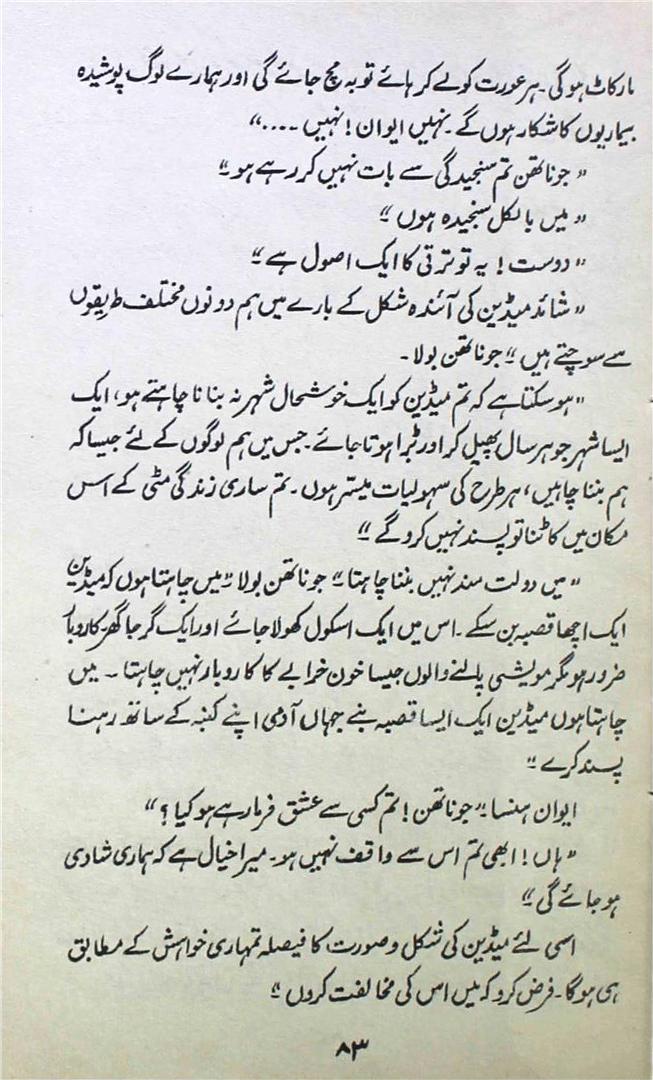 مارکاٹ ہوگی۔ ہر عورت کو لے کر ہائے توبہ مچ جائے گی اور ہمارے لوگ پوشیدہ
بیماریوں کا شکار ہوں گے۔ نہیں ایوان! نہیں ....“
”جوناتھن تم سنجیدگی سے بات نہیں کر رہے ہو۔“
”میں بالکل سنجیدہ ہوں“
”دوست! یہ تو ترقی کا ایک اصول ہے“
”شائد میڈین کی آئندہ شکل کے بارے میں ہم دونوں مختلف طریقوں
سے سوچتے ہیں“ جوناتھن بولا۔
”ہوسکتا ہے کہ تم میڈین کو ایک خوشحال شہر نہ بنانا چاہتے ہو، ایک
ایسا شہر جو ہر سال پھیل کر اور بڑا ہوتا جائے۔ جس میں ہم لوگوں کے لئے جیسا کہ
ہم بننا چاہیں، ہر طرح کی سہولیات میسر ہوں۔ تم ساری زندگی مٹی کے اس
مکان میں کاٹنا تو پسند نہیں کروگے“
”میں دولت مند نہیں بننا چاہتا“ جوناتھن بولا ”میں چاہتا ہوں کہ میڈین
ایک اچھا قصبہ بن سکے۔ اس میں ایک اسکول کھولا جائے اور ایک گرجا گھر۔ کاروبار
ضرور ہو مگر مویشی پالنے والوں جیسا خون خرابے کا کاروبار نہیں چاہتا ۔ میں
چاہتا ہوں میڈین ایک ایسا قصبہ بنے جہاں آدمی اپنے کنبہ کے ساتھ رہنا
پسند کرے“
ایوان ہنسا۔ ”جوناتھن! تم کسی سے عشق فرما رہے ہو کیا؟“
”ہاں! ابھی تم اس سے واقف نہیں ہو۔ میرا خیال ہے کہ ہماری شادی
ہو جائے گی“
اسی لئے میڈین کی شکل و صورت کا فیصلہ تمہاری خواہش کے مطابق
ہی ہوگا۔ فرض کرو کہ میں اس کی مخالفت کروں“
۸۳